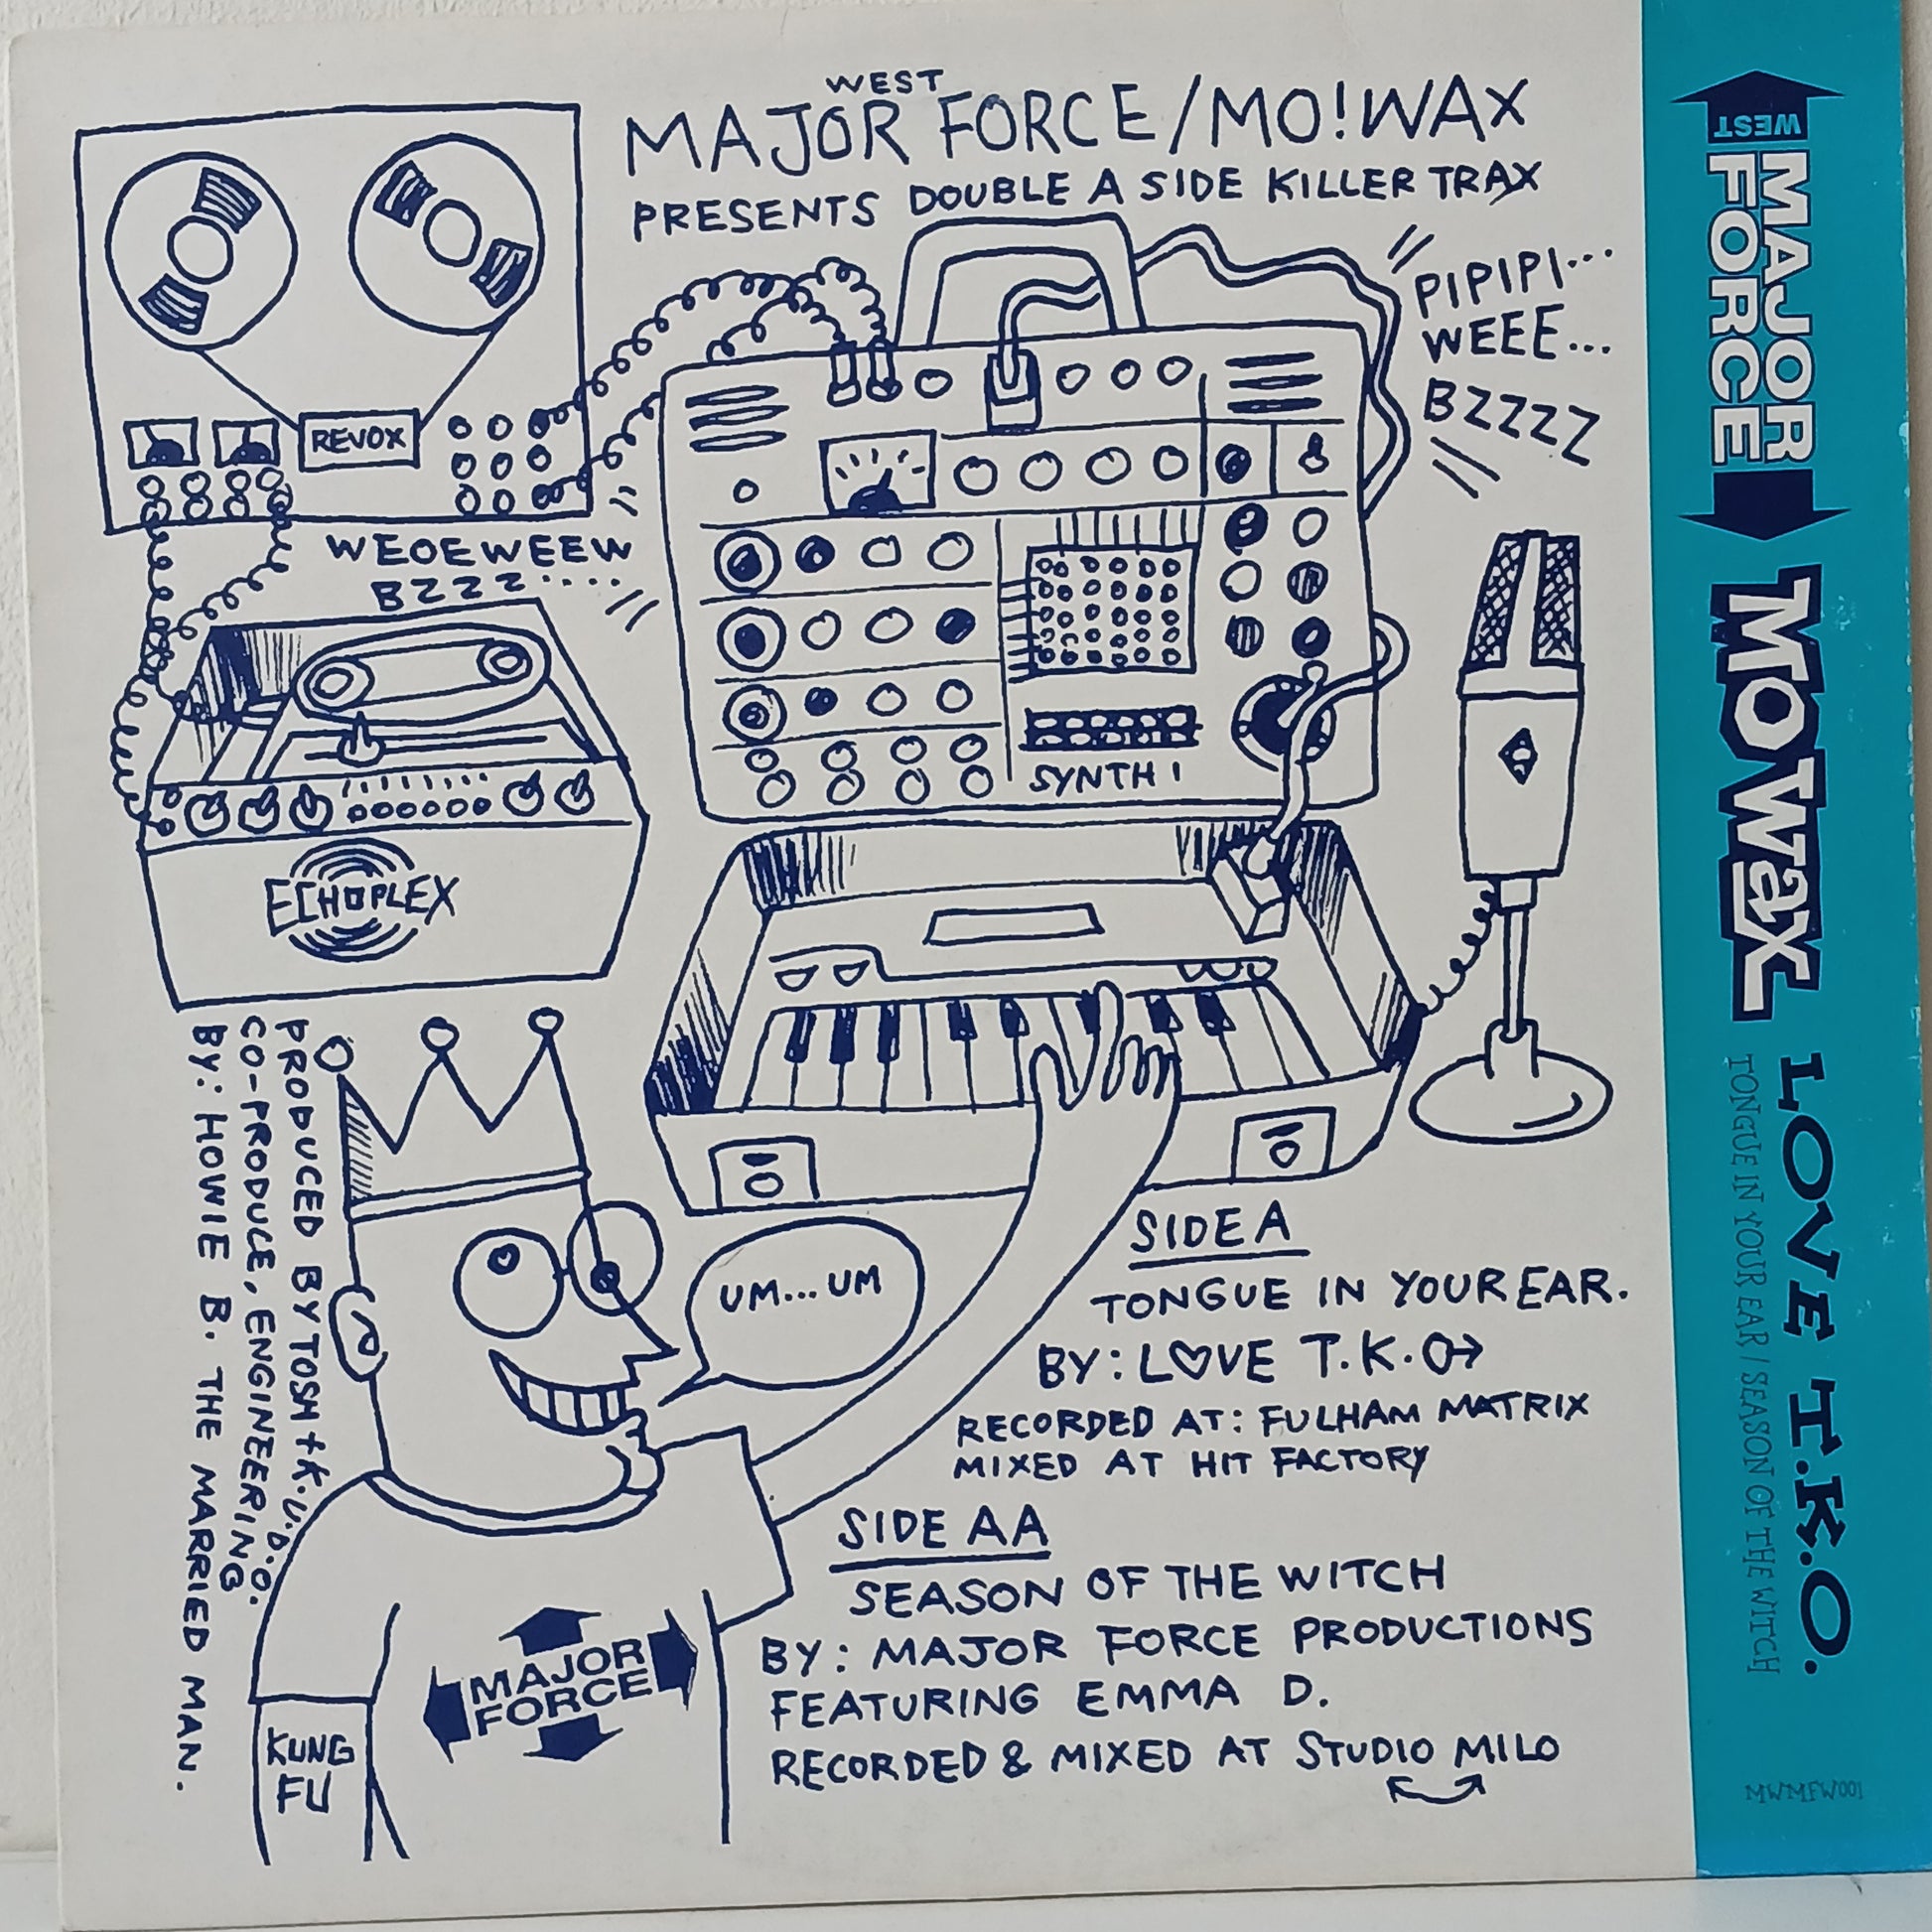 WEST
MAJOR FORCE/MO!WAX
PRESENTS DOUBLE A SIDE KILLER TRAX
PIPIPI...
WEEE...
BZZZZ
REVOX
WEOEWEEW
BZZZ.....
SYNTH 1
ECHOPLEX
PRODUCED BY TOSH + K.U.D.O.
CO-PRODUCE, ENGINEERING
BY: HOWIE B. THE MARRIED MAN.
UM...UM
SIDE A
TONGUE IN YOUR EAR.
BY: L♡VE T.K.O→
RECORDED AT: FULHAM MATRIX
MIXED AT HIT FACTORY
SIDE AA
SEASON OF THE WITCH
BY: MAJOR FORCE PRODUCTIONS
FEATURING EMMA D.
RECORDED & MIXED AT STUDIO MILO
MAJOR
FORCE
KUNG
FU
WEST
MAJOR
FORCE
MOWax
LOVE T.K.O.
TONGUE IN YOUR EAR / SEASON OF THE WITCH
MWMFW001